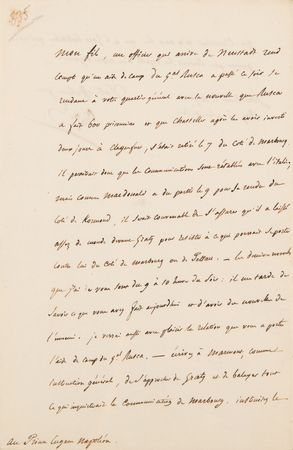 Mon fils, un officier qui arrive de Neustadt rend
compte qu'un aide de camp du Gal Rusca a passé ce soir se
rendant à votre quartier général avec la nouvelle que Rusca
a fait 600 prisonniers et que Chasteller après l'avoir investi
deux jours à Clagenfurt, s'était retiré le 7 du côté de Marbourg
il paraîtrait donc que la communication serait rétablie avec l'Italie,
mais comme Macdonald a dû partir le 9 pour se rendre du
côté de Kormond, il serait convenable de s'assurer qu'il a laissé
assez de monde devant Gratz pour résister à ce qui pourrait se porter
contre lui du côté de Marbourg ou de Pettau. — La dernière nouvelle
que j'ai de vous sont du 9 à 10 heures du soir: il me tarde de
savoir ce que vous avez fait aujourd'hui et d'avoir des nouvelles de
l'ennemi. je verrai aussi avec plaisir la relation que vous a portée
l'aide de camp du Gal Rusca. — écrivez à Marmont, comme
instruction générale, de s'approcher de Gratz et de balayer tout
ce qui inquiéterait la communication de Marbourg. instruisez le
au Prince Eugène Napoléon.